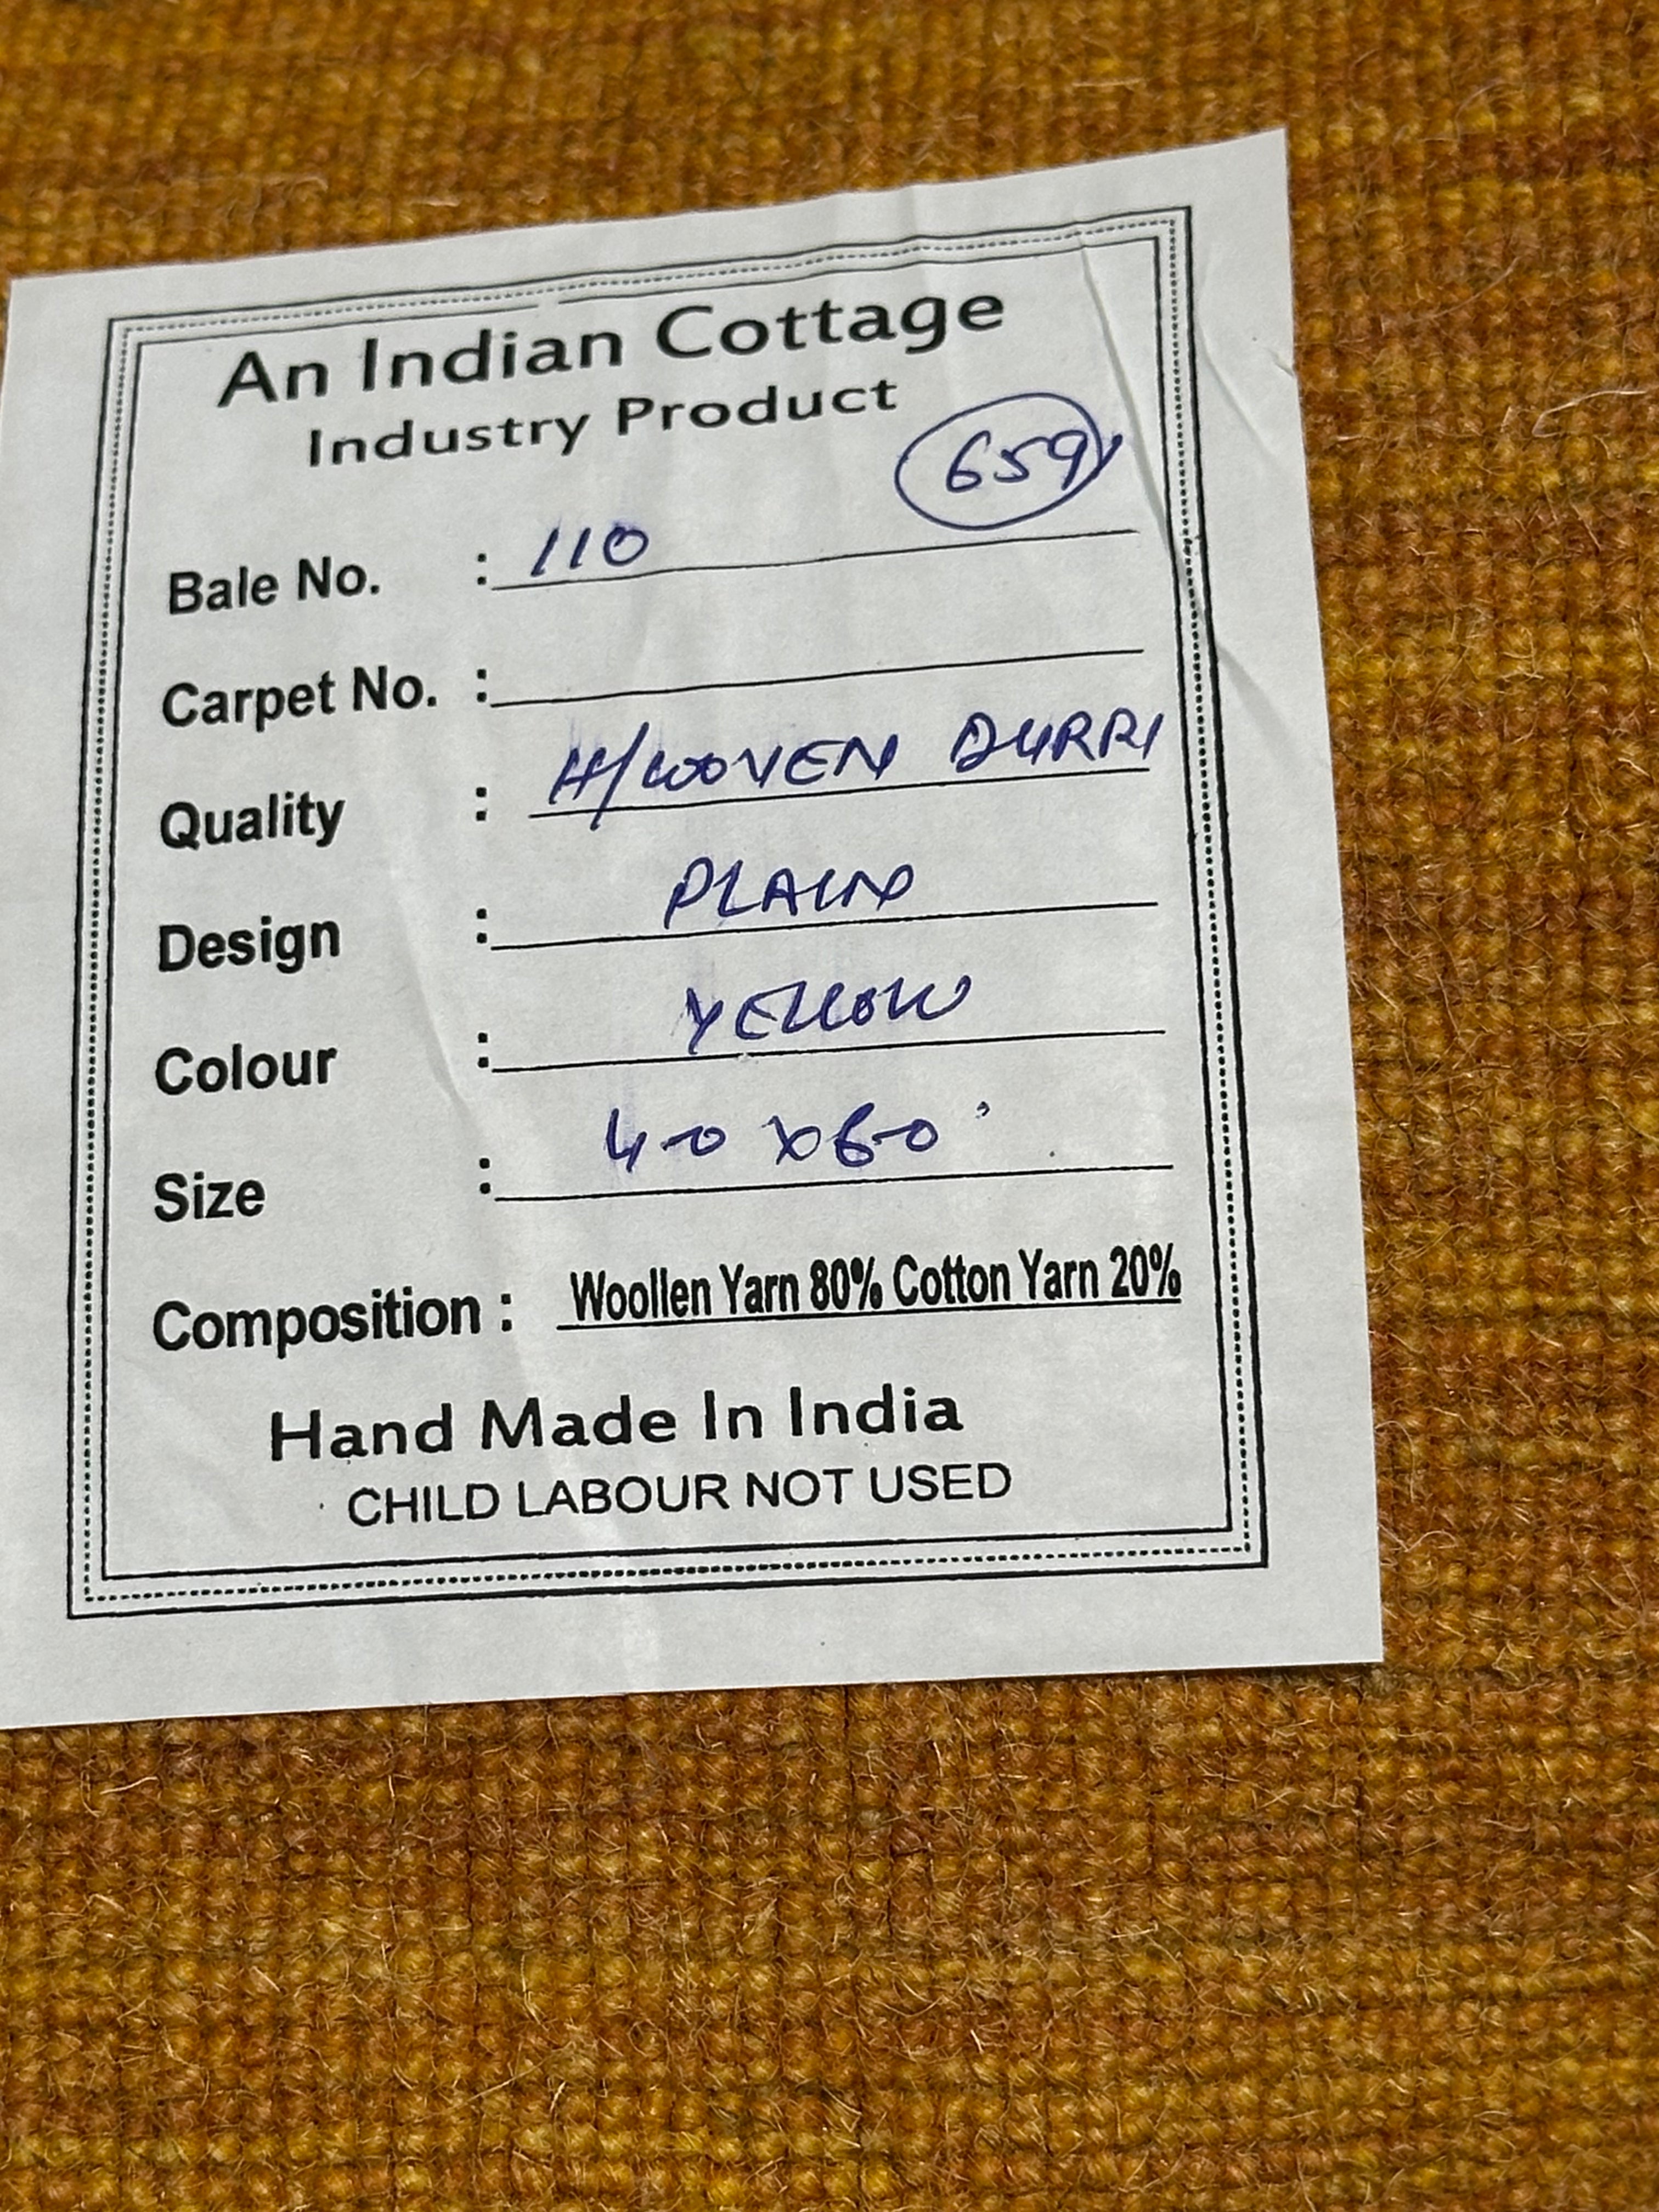 An Indian Cottage
Industry Product
659
Bale No. : 110
Carpet No. :
Quality : H/WOOVEN DURRI
Design : PLAIN
Colour : YELLOW
Size : 4-0 x 6-0
Composition : Woollen Yarn 80% Cotton Yarn 20%
Hand Made In India
CHILD LABOUR NOT USED